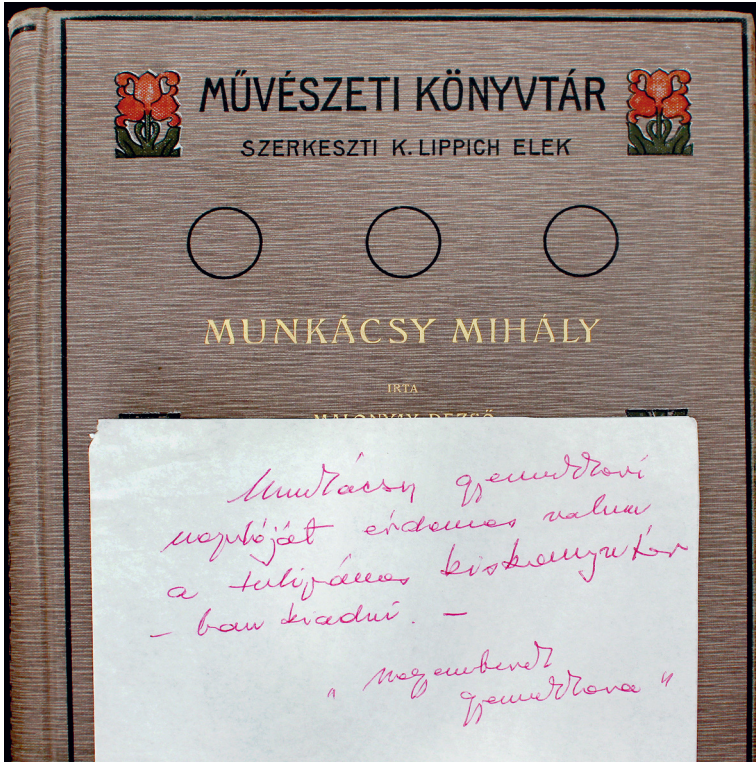 MŰVÉSZETI KÖNYVTÁR
SZERKESZTI K. LIPPICH ELEK
MUNKÁCSY MIHÁLY
IRTA
MALONYAY DEZSŐ
Munkácsy gyermekkori
naplóját érdemes volna
a tulipános kiskönyvtár
- ban kiadni. -
"nagyemberek
gyermekkora"